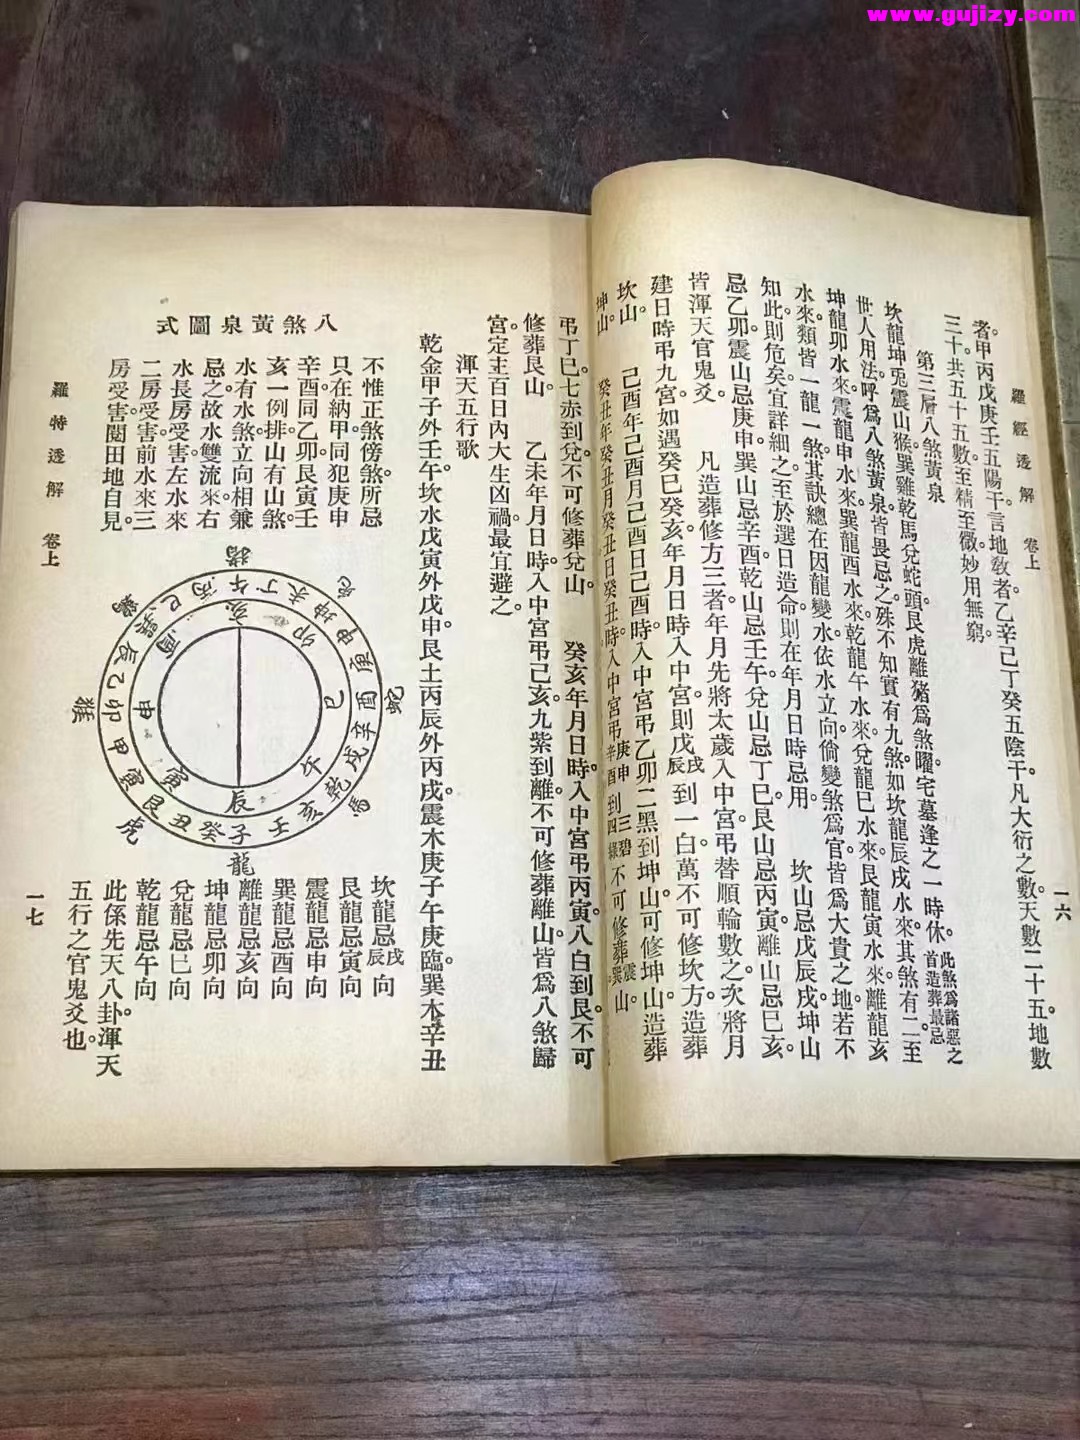 www.gujizy.com
羅經透解 卷上
一六
者。甲丙戊庚壬五陽干。言地敎者。乙辛己丁癸五陰干。凡大衍之數。天數二十五。地數
三十。共五十五數。至精至微。妙用無窮。
第三層八煞黃泉
坎龍坤兎震山猴。巽雞乾馬兌蛇頭。艮虎離猪爲煞曜。宅墓逢之一時休。此煞爲諸惡之首造葬最忌
世人用法。呼爲八煞黃泉。皆畏忌之。殊不知實有九煞。如坎龍辰戌水來。其煞有二。至
坤龍卯水來。震龍申水來。巽龍酉水來。乾龍午水來。兌龍巳水來。艮龍寅水來。離龍亥
水來。類皆一龍一煞。其訣總在因龍變水。依水立向。倘變煞爲官。皆爲大貴之地。若不
知此則危矣。宜詳細之。至於選日造命。則在年月日時忌用。 坎山忌戊辰戌。坤山
忌乙卯。震山忌庚申。巽山忌辛酉。乾山忌壬午。兌山忌丁巳。艮山忌丙寅。離山忌巳亥
皆渾天官鬼爻。 凡造葬修方三者。年月先將太歲入中宮。弔替順輪數之。次將月
建日時弔九宮。如遇癸巳癸亥年月日時入中宮。則戊辰戌到一白。萬不可修坎方。造葬
坎山。 己酉年己酉月己酉日己酉時。入中宮弔乙卯二黑到坤。山可修坤山。造葬
坤山。 癸丑年癸丑月癸丑日癸丑時。入中宮弔庚申三碧辛酉四綠到不可修葬震巽山
弔丁巳七赤到兌。不可修葬兌山。 癸亥年月日時。入中宮弔丙寅八白到艮。不可
修葬艮山。 乙未年月日時。入中宮弔己亥九紫到離。不可修葬離山。皆爲八煞歸
宮。定主百日內大生凶禍。最宜避之。
渾天五行歌
乾金甲子外壬午。坎水戊寅外戊申。艮土丙辰外丙戌。震木庚子午庚臨。巽木辛丑
八煞黃泉圖式
不惟正煞傍煞所忌
只在納甲同犯庚申
辛酉同乙卯艮寅壬
亥一例排山有山煞
水有水煞立向相兼
忌之。故水雙流來。右
水長房受害。左水來
二房受害。前水來三
房受害。閱田地自見。
猪
亥
丙午丁未坤申庚酉辛戌乾亥壬子癸丑艮寅甲卯乙辰巽巳
卯
巳
蛇
午
馬
辰
龍
寅
虎
申
猴
酉
坎龍忌辰戌向
艮龍忌寅向
震龍忌申向
巽龍忌酉向
離龍忌亥向
坤龍忌卯向
兌龍忌巳向
乾龍忌午向
此係先天八卦。渾天
五行之官鬼爻也。
羅特透解 卷上
一七